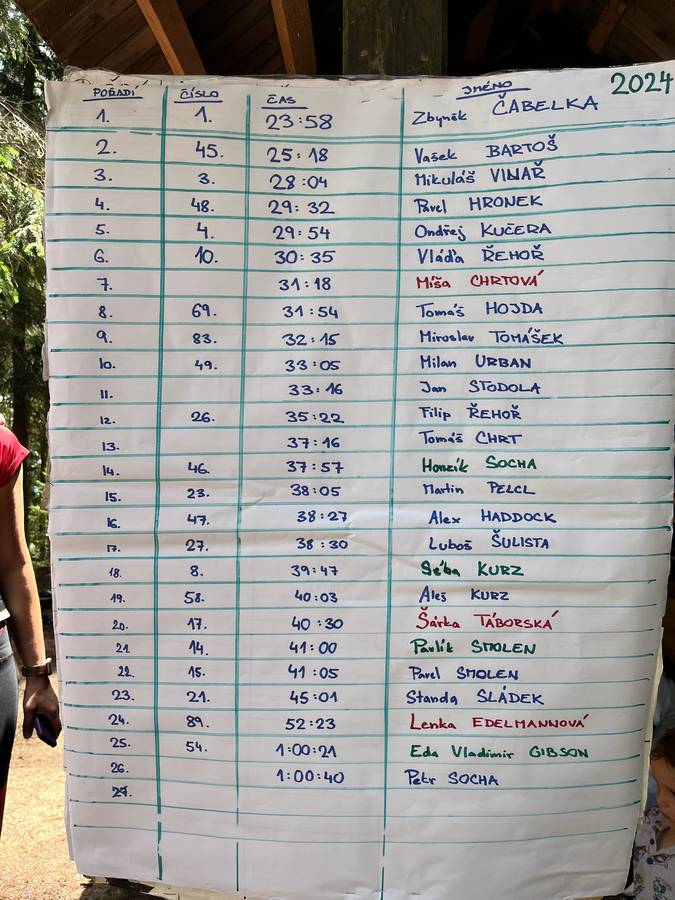 2024
POŘADÍ ČÍSLO ČAS JMÉNO
1. 1. 23:58 Zbyněk ČABELKA
2. 45. 25:18 Vašek BARTOŠ
3. 3. 28:04 Mikuláš VINAŘ
4. 48. 29:32 Pavel HRONEK
5. 4. 29:54 Ondřej KUČERA
6. 10. 30:35 Vláďa ŘEHOŘ
7. 31:18 Míša CHRTOVÁ
8. 69. 31:54 Tomáš HOJDA
9. 83. 32:15 Miroslav TOMÁŠEK
10. 49. 33:05 Milan URBAN
11. 33:16 Jan STODOLA
12. 26. 35:22 Filip ŘEHOŘ
13. 37:16 Tomáš CHRT
14. 46. 37:57 Honzík SOCHA
15. 23. 38:05 Martin PELCL
16. 47. 38:27 Alex HADDOCK
17. 27. 38:30 Luboš ŠULISTA
18. 8. 39:47 Séba KURZ
19. 58. 40:03 Aleš KURZ
20. 17. 40:30 Šárka TÁBORSKÁ
21. 14. 41:00 Pavlík SMOLEN
22. 15. 41:05 Pavel SMOLEN
23. 21. 45:01 Standa SLÁDEK
24. 89. 52:23 Lenka EDELMANNOVÁ
25. 54. 1:00:21 Eda Vladimir GIBSON
26. 1:00:40 Petr SOCHA
27.